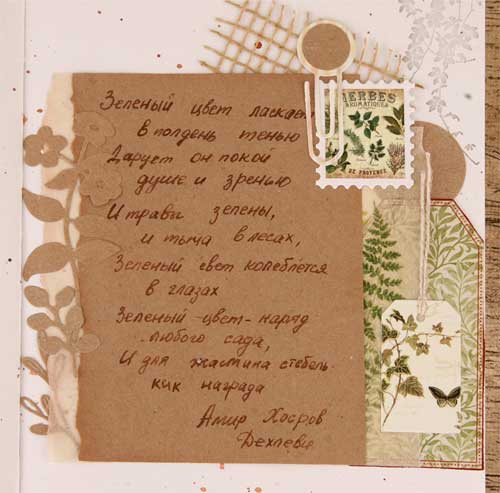 Зеленый цвет ласкает
в полдень тенью
Дарует он покой
душе и зренью
И травы зелены,
и тьма в лесах,
Зеленый свет колеблется
в глазах
Зеленый цвет - наряд
любого сада,
И для жасмина стебель
как награда
Амир Хосров
Дехлеви
HERBES
AROMATIQUES
DE PROVENCE